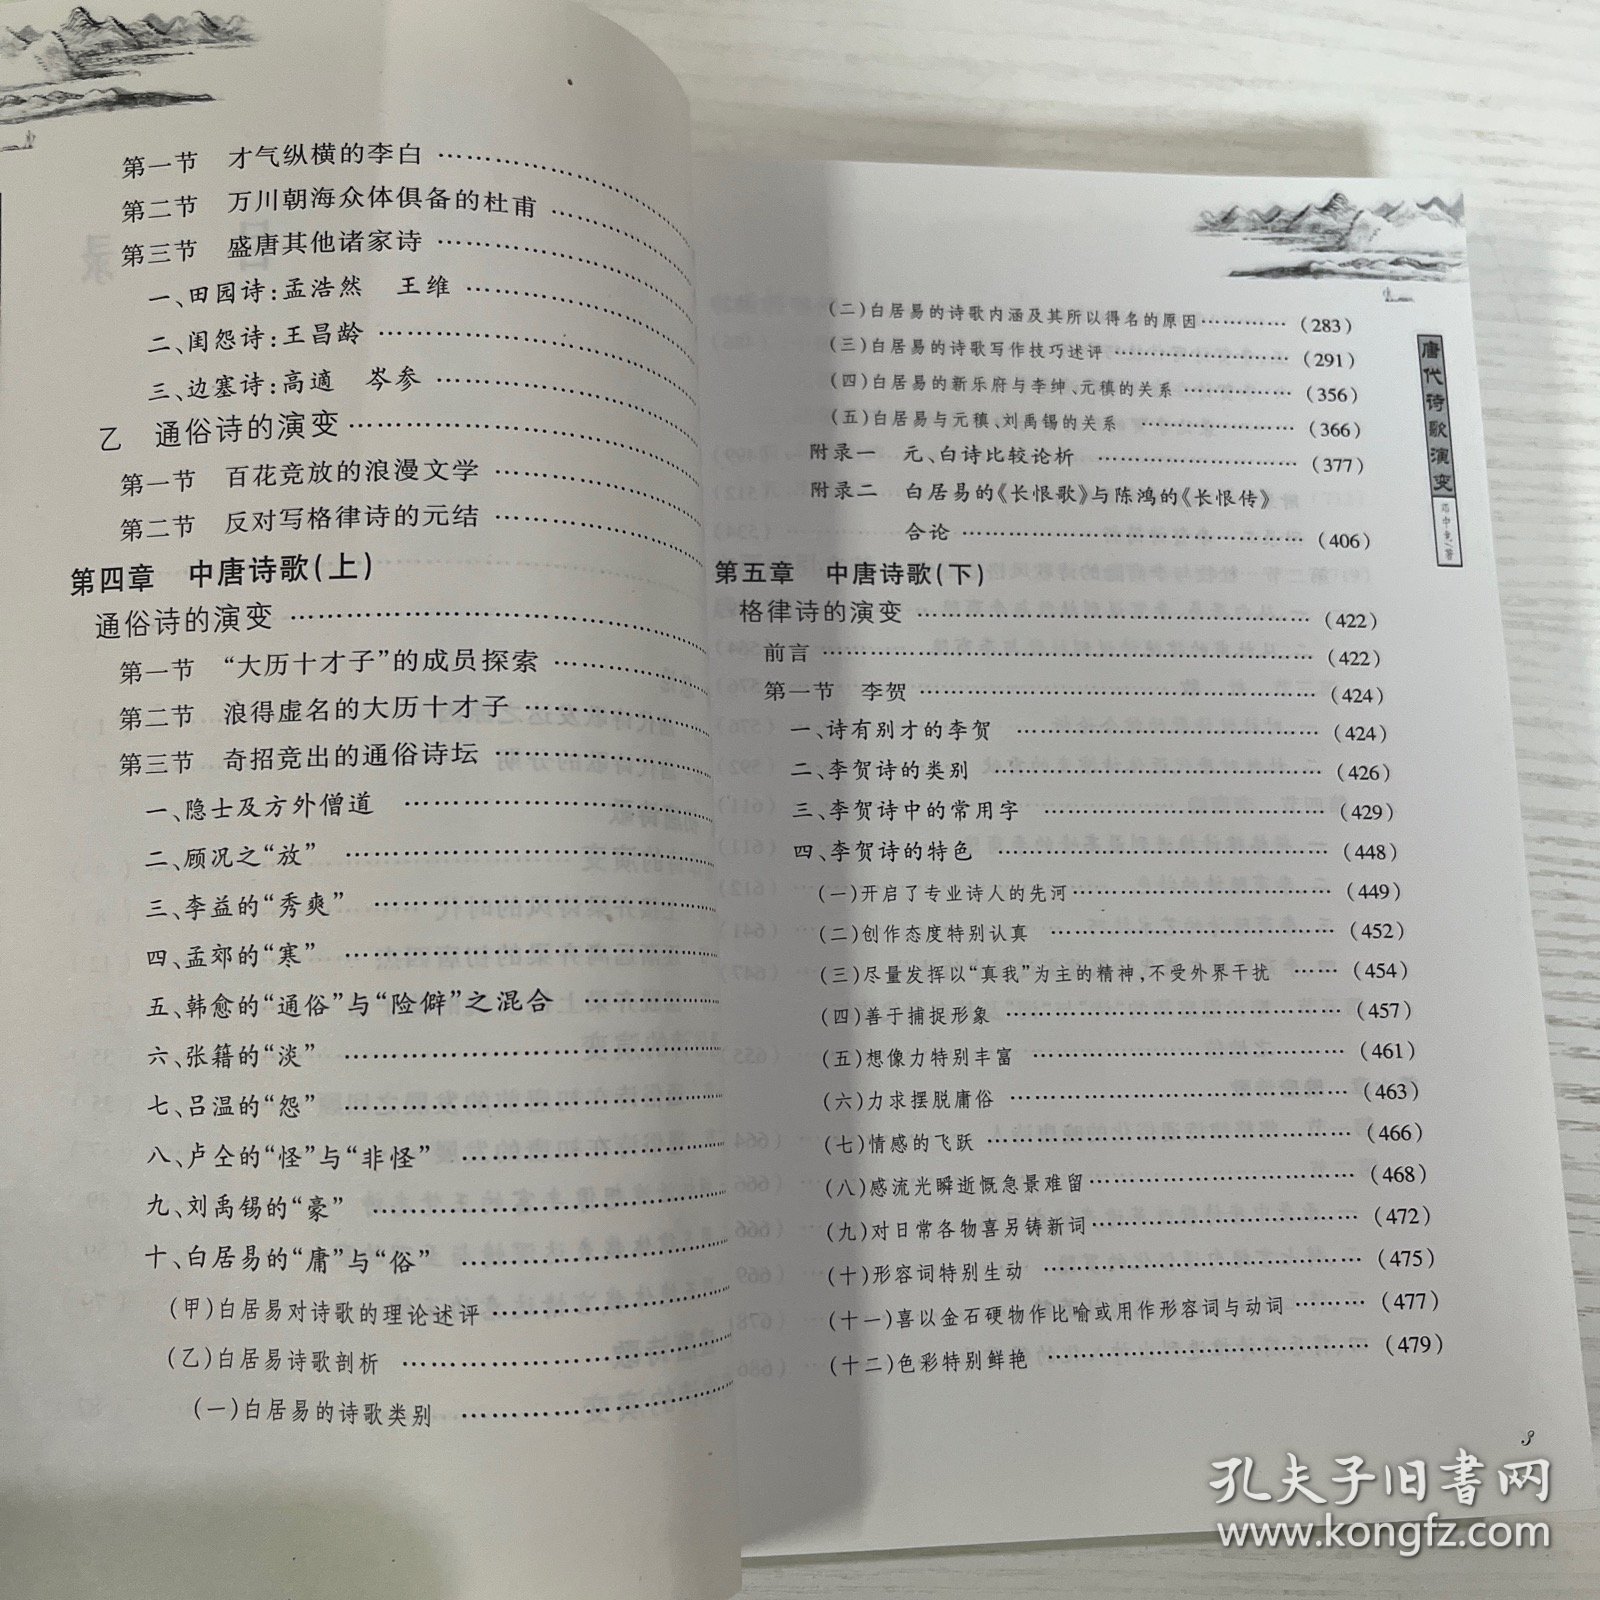 第一节　才气纵横的李白 ……………………
第二节　万川朝海众体俱备的杜甫 ……………
第三节　盛唐其他诸家诗 ……………………
一、田园诗:孟浩然　王维 …………………
二、闺怨诗:王昌龄 ………………………
三、边塞诗:高適　岑参 ……………………
乙　通俗诗的演变 …………………………
第一节　百花竞放的浪漫文学 ………………
第二节　反对写格律诗的元结 ………………
第四章　中唐诗歌(上)
通俗诗的演变 ………………………………
第一节　“大历十才子”的成员探索 …………
第二节　浪得虚名的大历十才子 ……………
第三节　奇招竞出的通俗诗坛 ………………
一、隐士及方外僧道 ………………………
二、顾况之“放” ……………………………
三、李益的“秀爽” …………………………
四、孟郊的“寒” ……………………………
五、韩愈的“通俗”与“险僻”之混合 …………
六、张籍的“淡” ……………………………
七、吕温的“怨” ……………………………
八、卢仝的“怪”与“非怪” …………………
九、刘禹锡的“豪” …………………………
十、白居易的“庸”与“俗” …………………
(甲)白居易对诗歌的理论述评 ………………
(乙)白居易诗歌剖析 ………………………
(一)白居易的诗歌类别 ……………………
(二)白居易的诗歌内涵及其所以得名的原因 ………… (283)
(三)白居易的诗歌写作技巧述评 ………………… (291)
(四)白居易的新乐府与李绅、元稹的关系 ………… (356)
(五)白居易与元稹、刘禹锡的关系 ………………… (366)
附录一　元、白诗比较论析 ……………………… (377)
附录二　白居易的《长恨歌》与陈鸿的《长恨传》
合论 …………………………………… (406)
第五章　中唐诗歌(下)
格律诗的演变 …………………………………… (422)
前言 ……………………………………………… (422)
第一节　李贺 …………………………………… (424)
一、诗有别才的李贺 …………………………… (424)
二、李贺诗的类别 ……………………………… (426)
三、李贺诗中的常用字 ………………………… (429)
四、李贺诗的特色 ……………………………… (448)
(一)开启了专业诗人的先河 …………………… (449)
(二)创作态度特别认真 ………………………… (452)
(三)尽量发挥以“真我”为主的精神,不受外界干扰 …… (454)
(四)善于捕捉形象 ……………………………… (457)
(五)想像力特别丰富 …………………………… (461)
(六)力求摆脱庸俗 ……………………………… (463)
(七)情感的飞跃 ………………………………… (466)
(八)感流光瞬逝慨急景难留 …………………… (468)
(九)对日常各物喜另铸新词 …………………… (472)
(十)形容词特别生动 …………………………… (475)
(十一)喜以金石硬物作比喻或用作形容词与动词 ……… (477)
(十二)色彩特别鲜艳 …………………………… (479)
唐代诗歌演变
3
孔夫子旧书网
www.kongfz.com